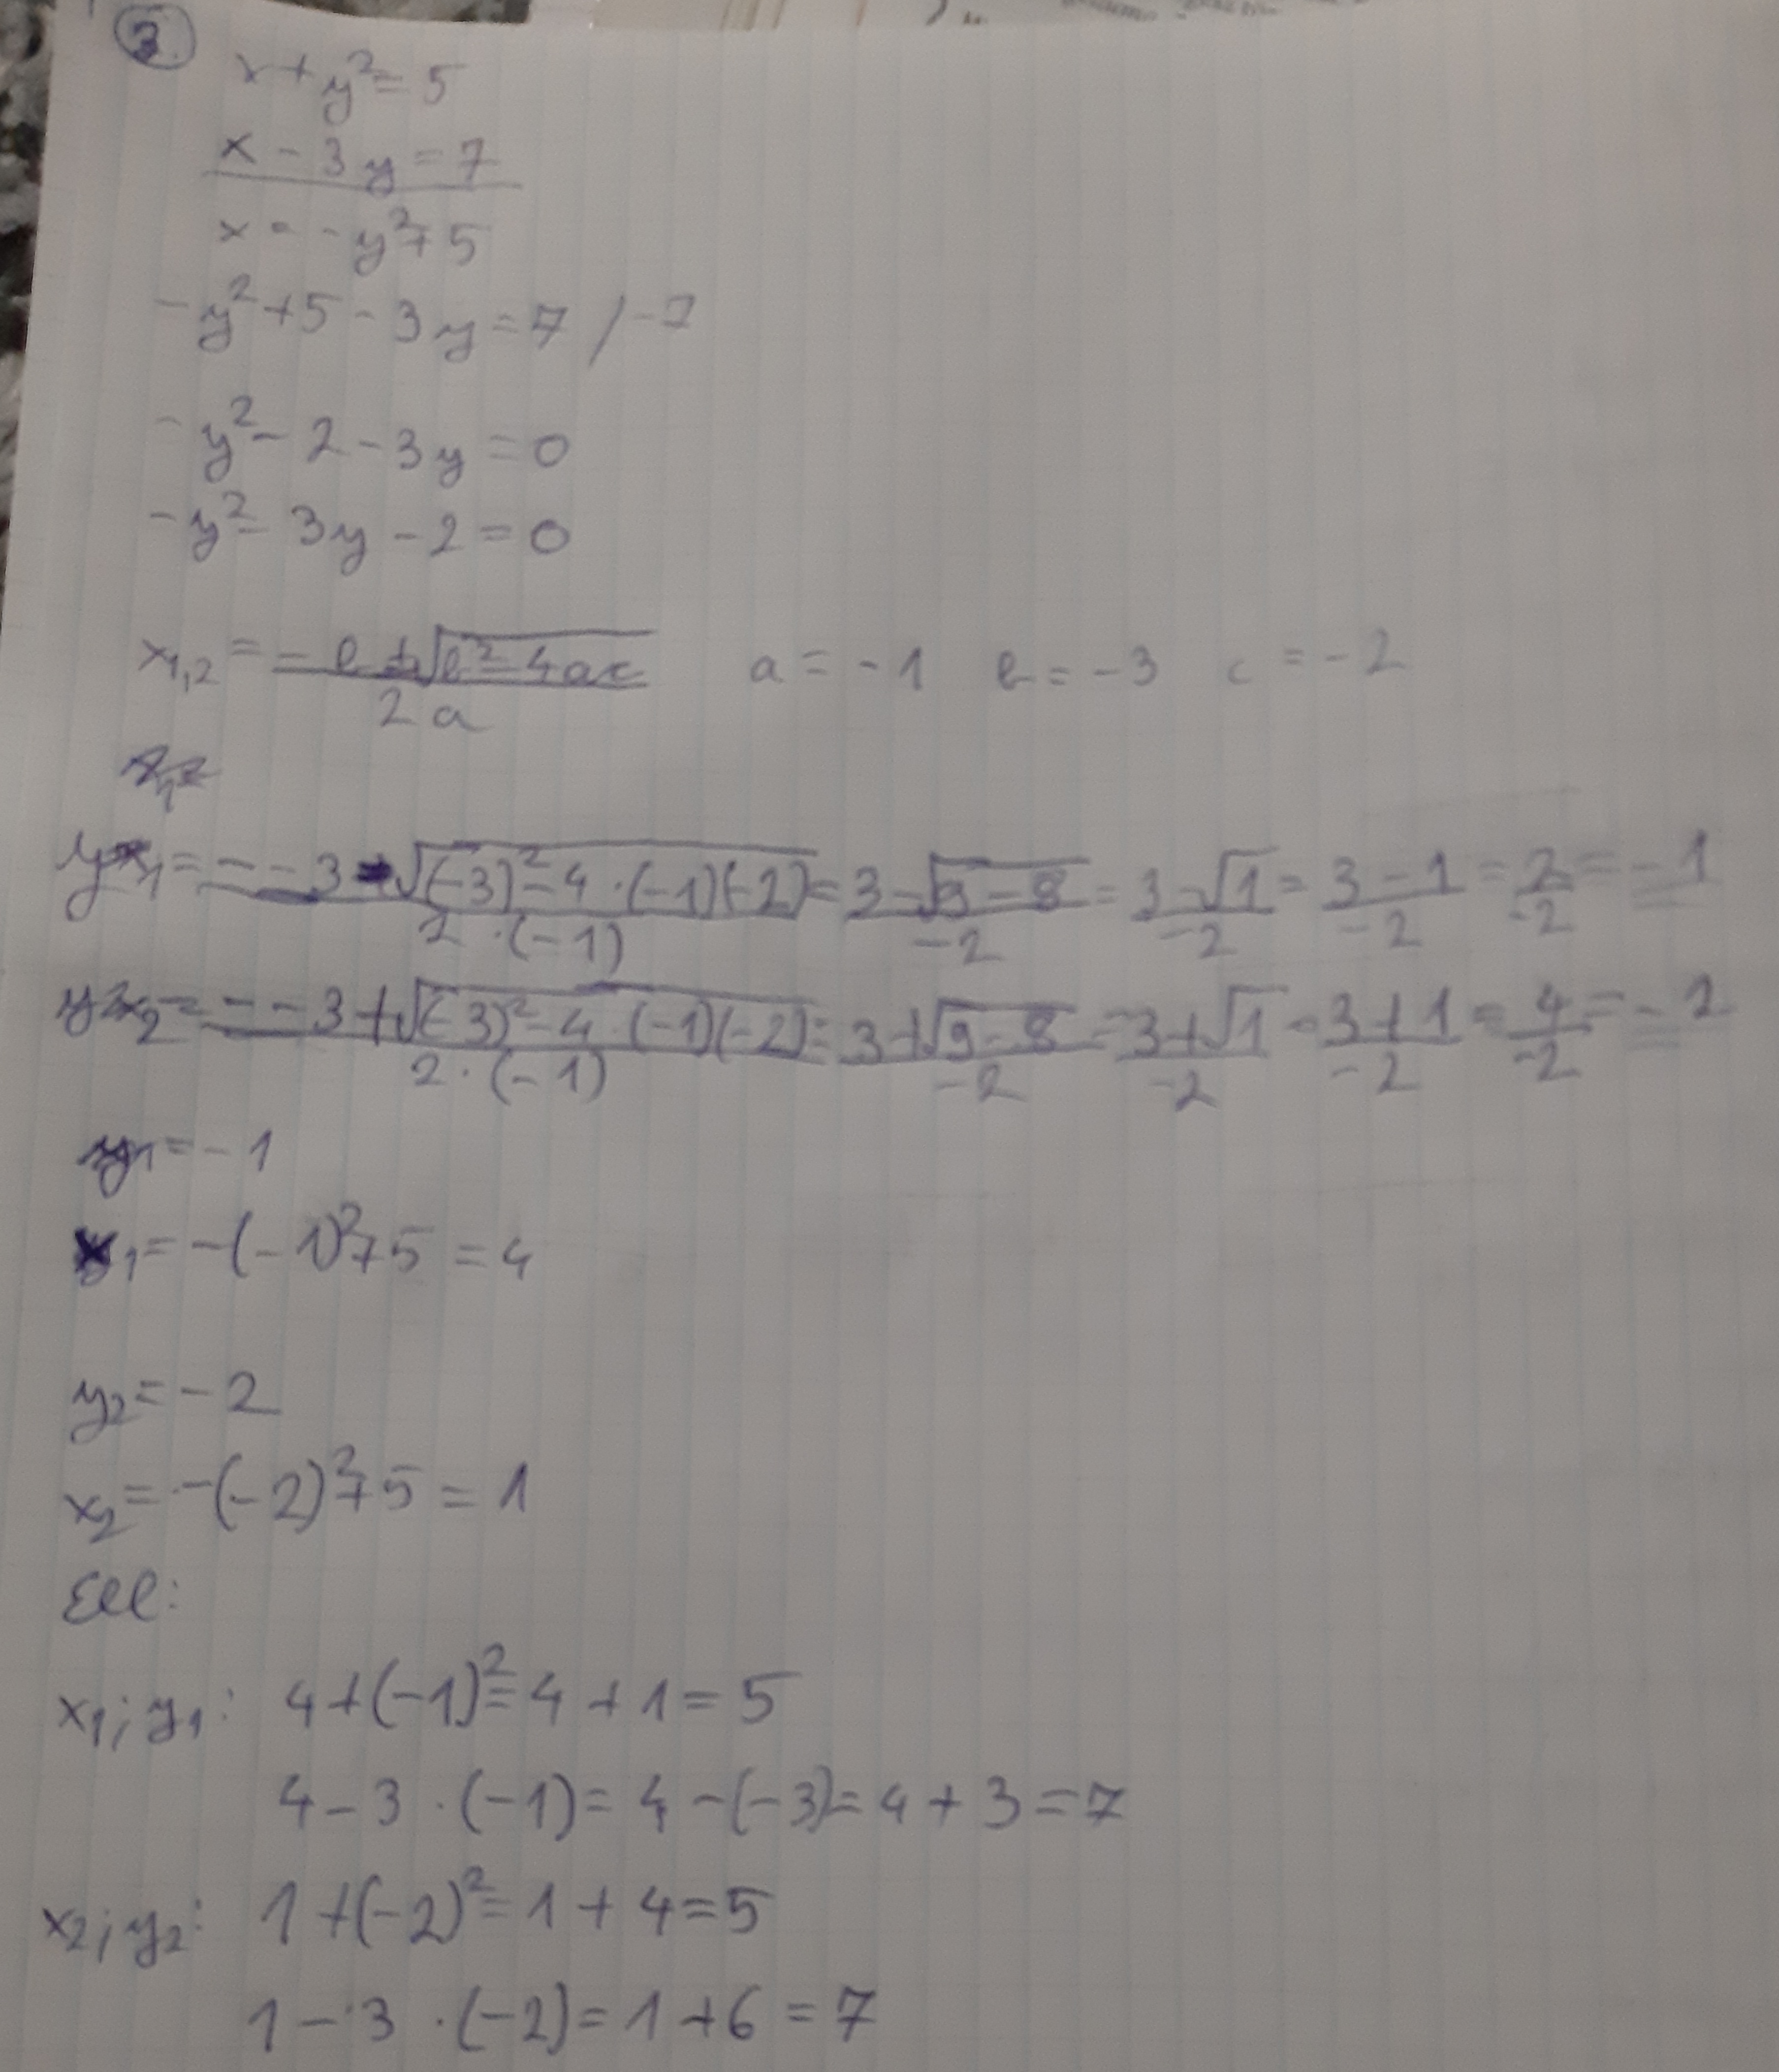 3.
x+y²=5
x-3y=7
x=-y²+5
-y²+5-3y=7 /-7
-y²-2-3y=0
-y²-3y-2=0
x₁,₂ = (-b±√(b²-4ac))/(2a) a=-1 b=-3 c=-2
y₁ = (--3-√((-3)²-4·(-1)(-2)))/(2·(-1)) = (3-√(9-8))/(-2) = (3-√1)/(-2) = (3-1)/(-2) = 2/(-2) = -1
y₂ = (--3+√((-3)²-4·(-1)(-2)))/(2·(-1)) = (3+√(9-8))/(-2) = (3+√1)/(-2) = (3+1)/(-2) = 4/(-2) = -2
y₁=-1
x₁=-(-1)²+5=4
y₂=-2
x₂=-(-2)²+5=1
Ell:
x₁;y₁: 4+(-1)²=4+1=5
4-3·(-1)=4-(-3)=4+3=7
x₂;y₂: 1+(-2)²=1+4=5
1-3·(-2)=1+6=7